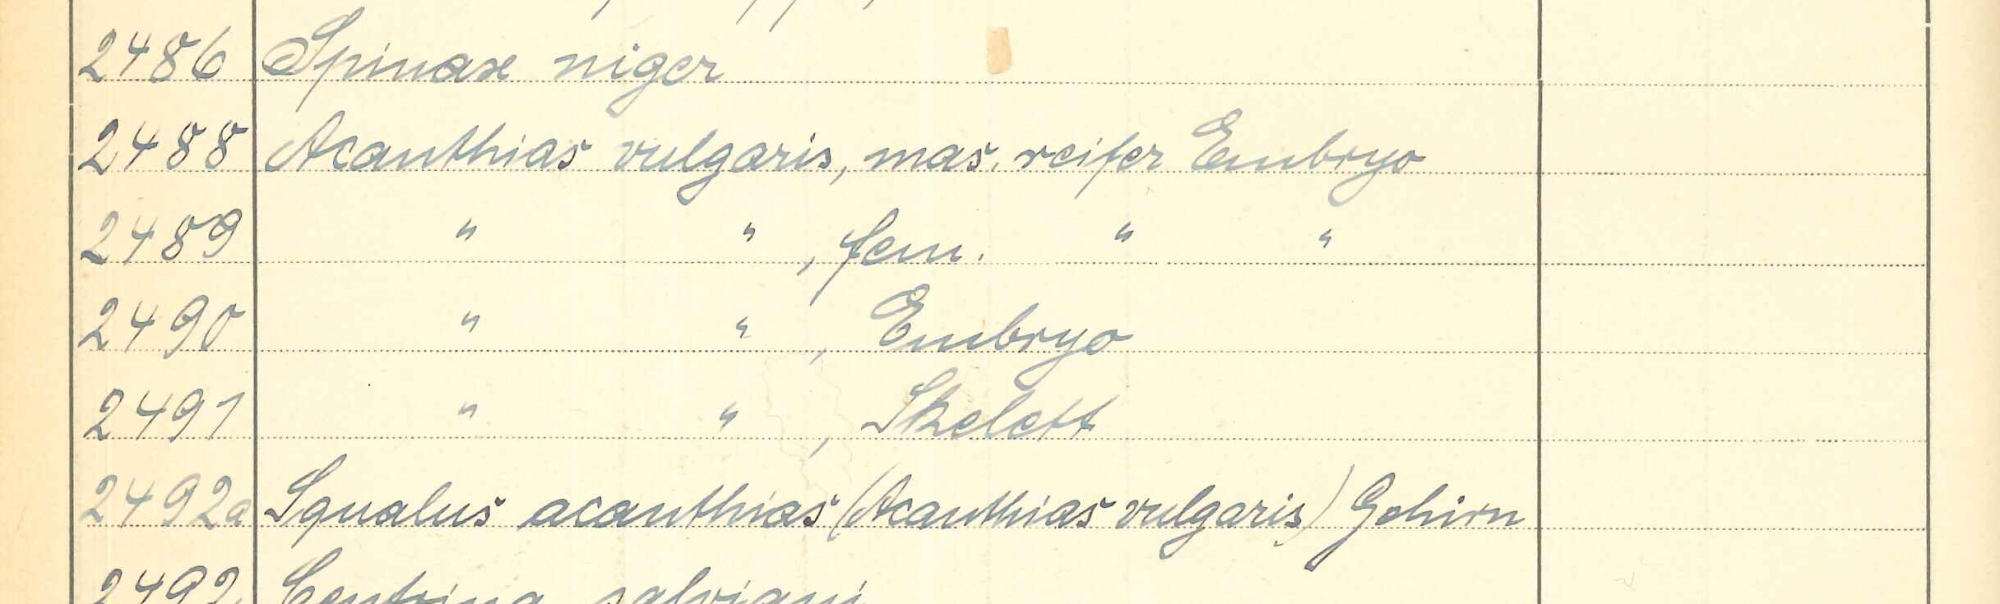 2486 Spinax niger
2488 Acanthias vulgaris, mas. reifer Embryo
2489 " " , fem. " "
2490 " " , Embryo
2491 " " , Skelett
2492a Squalus acanthias (Acanthias vulgaris) Gehirn
2492 Centrina salviani